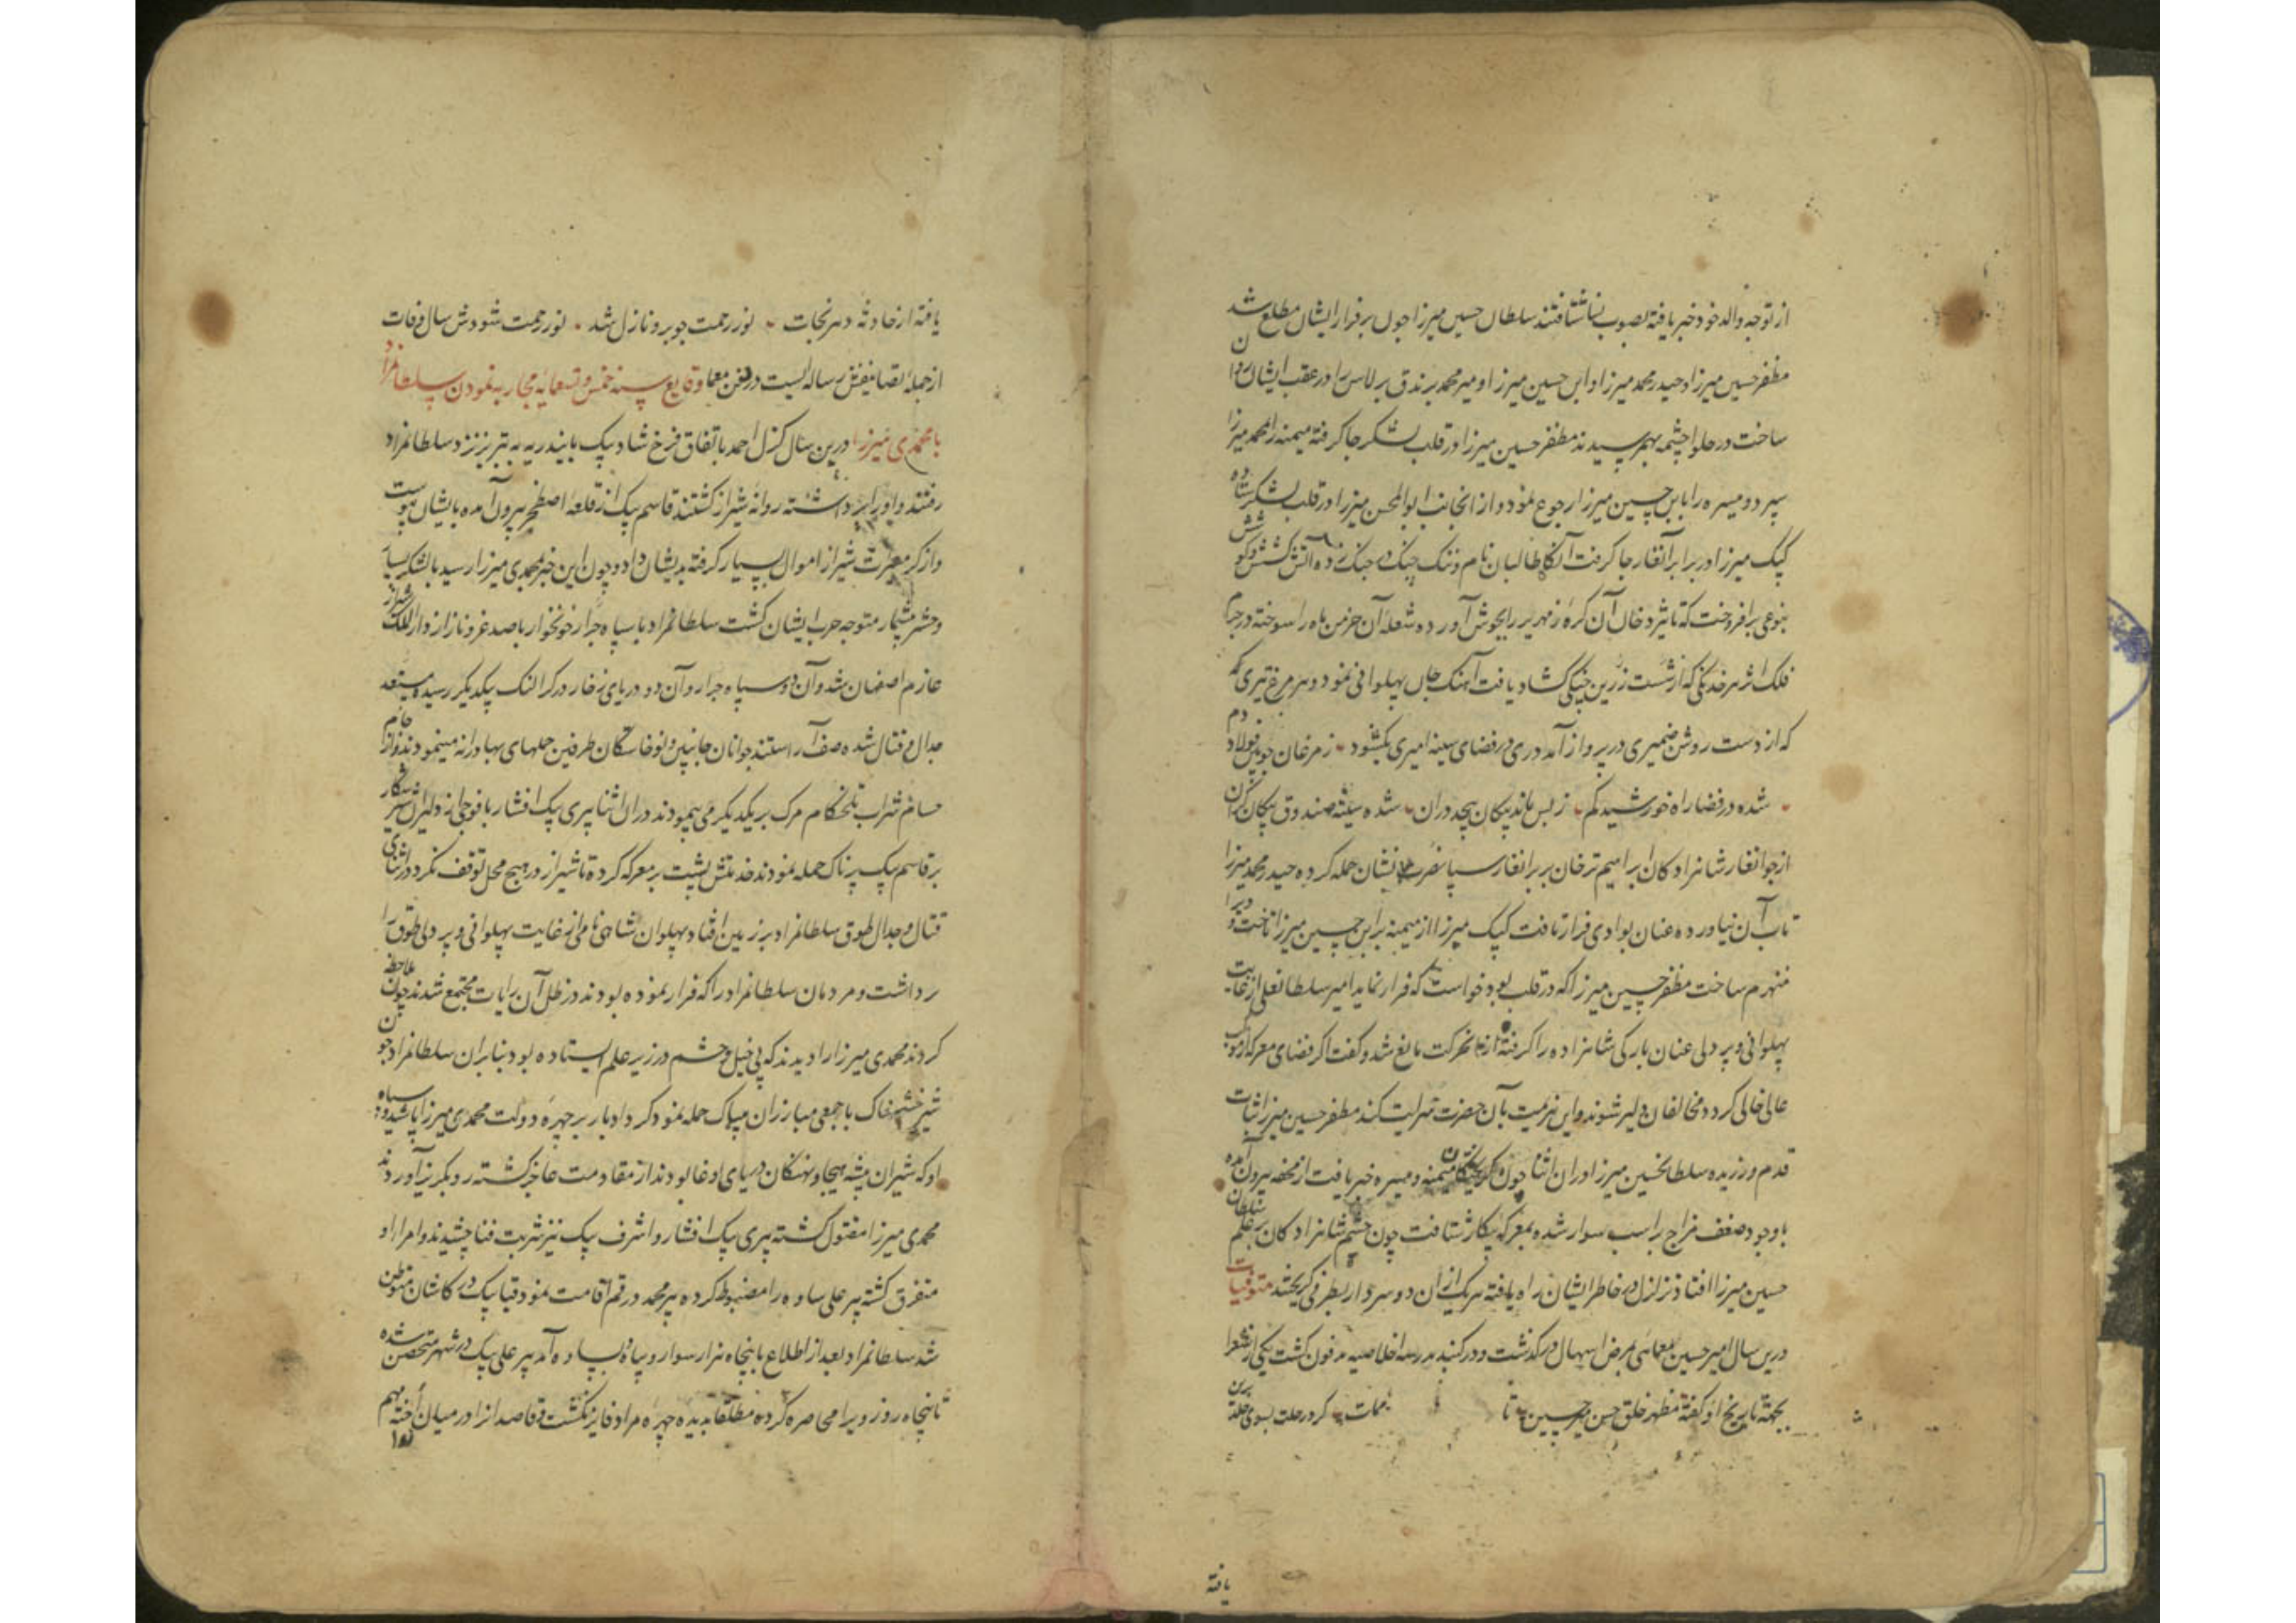 از توجه والد خود خبر یافته بصوب نسا شتافتند سلطان حسین میرزا چون بر فرار ایشان مطلع شد
مظفر حسین میرزا و حیدر محمد میرزا و ابن حسین میرزا و میر محمد برندق برلاس را در عقب ایشان روان
ساخت در حلوا چشمه بهم رسیدند مظفر حسین میرزا در قلب لشکر جا گرفته میمنه را محمد میرزا
سپرد و میسره را با ابن حسین میرزا رجوع نمود و از انجانب ابو المحسن میرزا در قلب لشکر ستاده
کپک میرزا در برابر آنغار جا گرفت آنگاه طالبان نام و ننگ چنگ در جنگ زده آتش کشش و کوشش
بنوعی برافروخت که تاثیر دخان آن کره زمهریر را بجوش آورده شعله آن خرمن ماه را سوخته در جرم
فلک اثر هر خدنکی که از شست زرین چنگی کشاد یافت آهنک جان پهلوانی نمود و هر مرغ تیری که
که از دست روشن ضمیری در پرواز آمد دری در فضای سینه امیری بکشود زمرغان چوبین فولاد دم
شده در فضا راه خورشید کم ز بس ماند پیکان بیجد دران شده سینه صندوق پیکان کران
از جوانغار شاهزادکان ابراهیم ترخان بر برانغار سپاه نصرت نشان حمله کرده حیدر محمد میرزا
تاب آن نیاورده عنان بوادی فرار تافت کپک میرزا از میمنه بر ابن حسین میرزا تاخت و او را
منهزم ساخت مظفر حسین میرزا که در قلب بود خواست که فرار نماید امیر سلطانعلی از غایت
پهلوانی و پر دلی عنان بارکی شاهزاده را گرفته از حرکت مانع شد و گفت اگر فضای معرکه از موکب
عالی خالی کردد مخالفان دلیر شوند و این هزیمت بآن حضرت سرایت کند مظفر حسین میرزا ثبات
قدم ورزیده سلطانحسین میرزا دران اثنا چون از گریختکان میمنه و میسره خبر یافت از محفه بیرون آمده
با وجود ضعف مزاج بر اسب سوار شده بمعرکه پیکار شتافت چون چشم شاهزادکان بر علم سلطان
حسین میرزا افتاد تزلزل در خاطر ایشان راه یافته هر یک ازان دو سردار بطرفی گریختند متوفیات
درین سال امیر حسین معمائی بمرض اسهال در گذشت و در گنبد مدرسه اخلاصیه مدفون گشت یکی از شعرا
بجهة تاریخ او گفته مظهر خلق حسن میر حسین تا ممات کرد رحلت بسوی خلد برین
یافته
یافته از حادثه دهر نجات نور رحمت چو برو نازل شد نور رحمت شودش سال وفات
از جمله تصانیفش رساله ایست در فن معما وقایع سنه خمس و تسعمایه محاربه نمودن سلطانمراد
با محمدی میرزا درین سال کزل احمد باتفاق فرخ شاد بیک بایندریه به تبریز نزد سلطانمراد
رفتند و او را برداشته روانه شیراز گشتند قاسم بیک از قلعه اصطخر بیرون آمده بایشان پیوست
و از کر معرت شیراز اموال بسیار گرفته بدیشان داد و چون این خبر بمحمدی میرزا رسید با لشکر بسیار
و حشر بیشمار متوجه حرب ایشان گشت سلطانمراد با سپاه جرار خونخوار با صد عز و ناز از دار الملک شیراز
عازم اصفهان شد و آن دو سپاه جرار و آن دو دریای زخار در کرالنک بیکدیگر رسیده مستعد
جدال و قتال شده صف آراستند جوانان جانبین و نوخاستکان طرفین حملهای بهادرانه مینمودند و از جام
حسام شراب تلخکام مرک بر یکدیکر می پیمودند دران اثنا پیری بیک افشار با فوجی از دلیران شیر شکار
بر قاسم بیک پرناک حمله نمودند خدمتش پشت بر معرکه کرده تا شیراز در هیچ محل توقف نکرد در اثنای
قتال و جدال طوق سلطانمراد بر زمین افتاد پهلوان شاهی نامی از غایت پهلوانی و پر دلی طوق را
برداشت و مردمان سلطانمراد را که فرار نموده بودند در ظل آن رایات مجتمع شدند چون ملاحظه
کردند محمدی میرزا را دیدند که بی خیل و حشم در زیر علم ایستاده بود بنابران سلطانمراد چون
شیر خشمناک با جمعی مبارزان بیباک حمله نمود گرد ادبار بر چهره دولت محمدی میرزا پاشید و سپاه
او که شیران بیشه هیجا و نهنکان دریای وغا بودند از مقاومت عاجز گشته رو بگریز آوردند
محمدی میرزا مقتول گشته پیری بیک افشار و اشرف بیک نیز شربت فنا چشیدند و امراء او
متفرق گشته پیر علی ساوه را مضبوط کرده پیر محمد در قم اقامت نمود قیا بیک در کاشان متوطن
شد سلطانمراد بعد از اطلاع با پنجاه هزار سوار و پیاده بساوه آمد پیر علی بیک در شهر متحصن شده
تا پنجاه روز ویرا محاصره کرده مطلقا بدیده چهره مراد فایز نگشت قاصدانرا در میان انداخته مهم